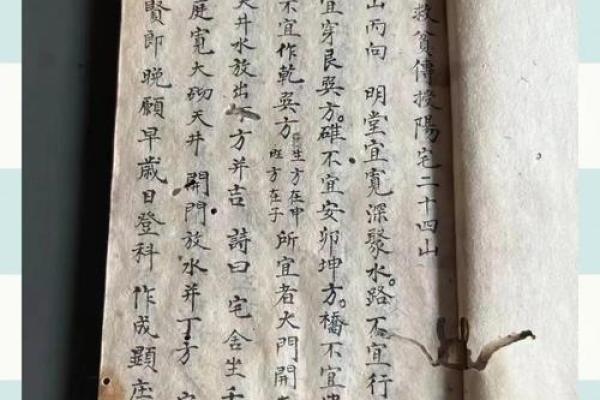 救貧傳授陽宅二十四山
山丙向 明堂宜寬深聚水。路不宜行
宜穿艮巽方。碓不宜安卯坤方。橋不宜
不宜作乾巽方 生方在申 旺方在子 所宜者大門開
天井水放出丁方并吉 詩曰 宅舍坐壬
庭寬大砌天井 開門放水并丁方
賢郎晚願早歲日登科 作成顯